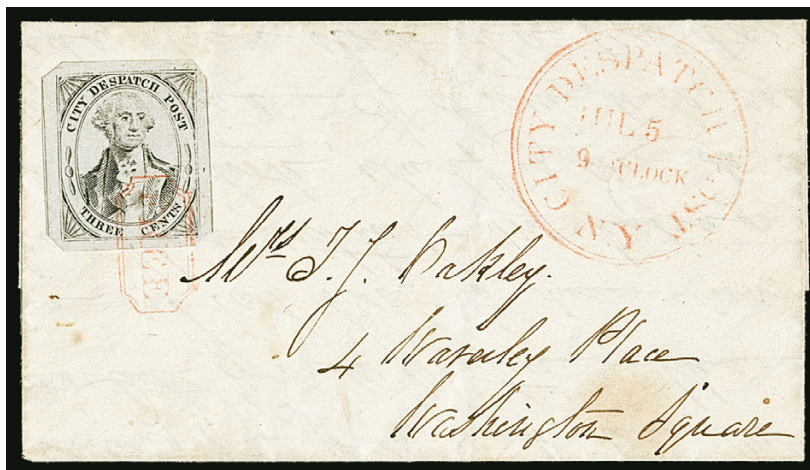 CITY DESPATCH POST
THREE CENTS
FREE
CITY DESPATCH POST
JUL 5
9 O'CLOCK
N.Y.
Mrs T. J. Oakley.
4 Waverley Place
Washington Square